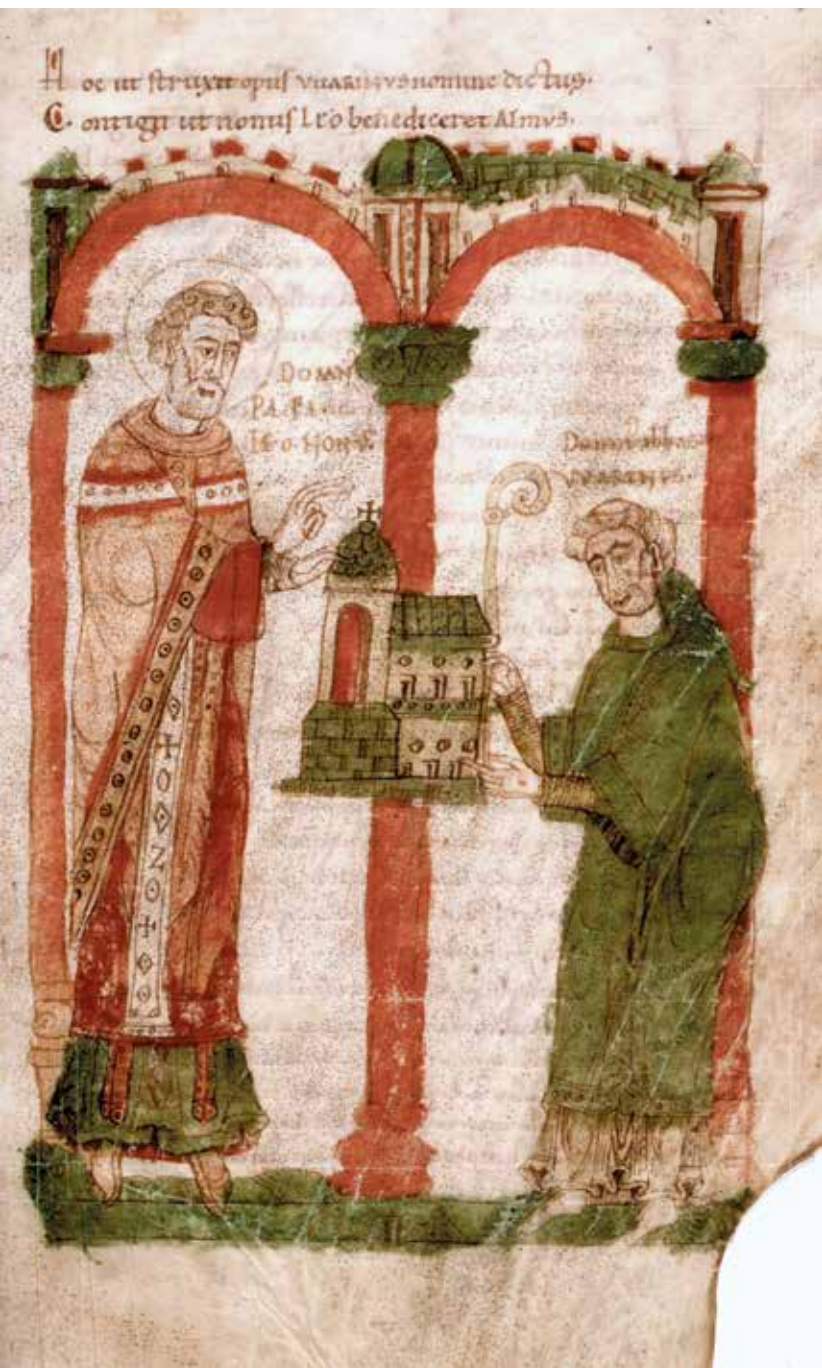 Hoc ut struxit opus VUARINVS nomine dictus.
Contigit ut nonus Leo benediceret Almus.
DOMN'
PAPA.
LEO. NONVS.
Domn' abbas